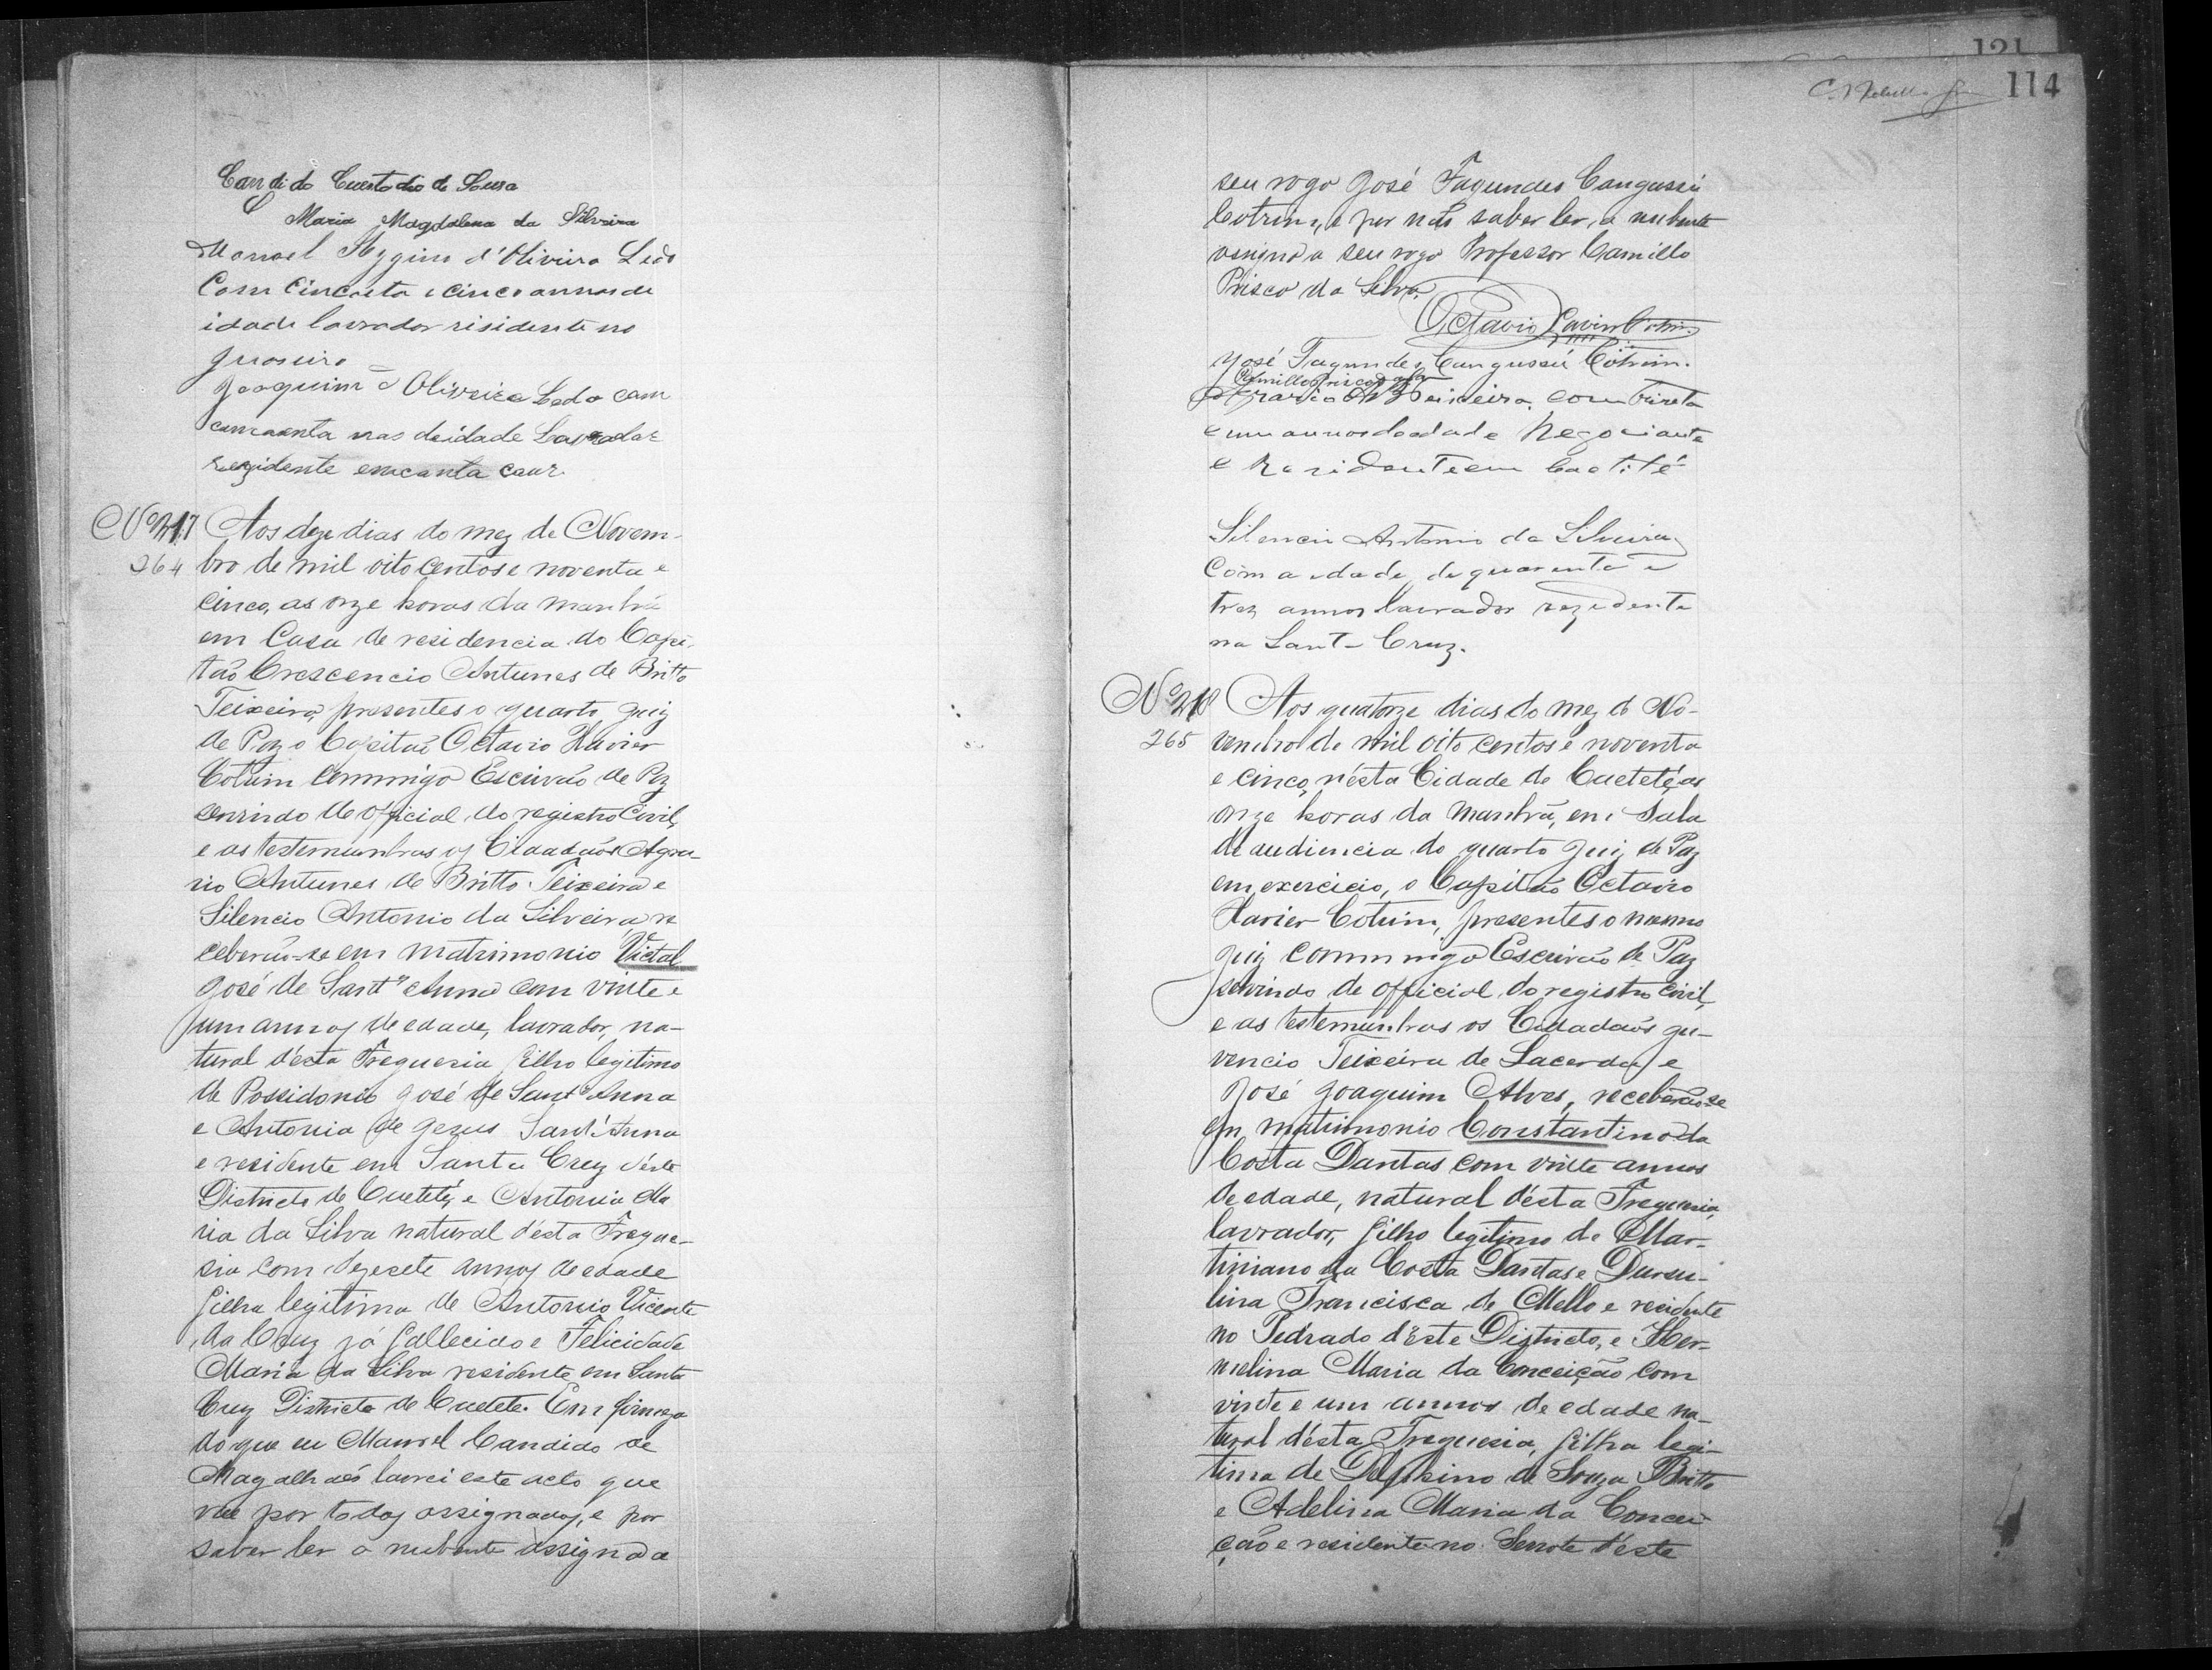 Candido Custodio de Sousa
Maria Magdalena da Silveira
Manoel Hygino d'Oliveira Ledo
Com cincoenta e cinco annos de
idade lavrador risidente no
Joaquim d Oliveira Ledo com
annos deidade Lavrador
rezidente em
Nº 217 Aos doze dias do mez de Novem-
264 bro de mil oito centos e noventa e
cinco, as onze horas da manhã
em Casa de residencia do Capi-
tão Crescencio Antunes de Britto
Teixeira, presentes o quarto Juiz
de Paz o Capitão Octavio Xavier
Cotrim commigo Escrivão de Paz
servindo de official do registro Civil,
e as testemunhas os Cidadaõs Agra-
rio Antunes de Britto Teixeira e
Silencio Antonio da Silveira, re
ceberão-se em matrimonio Victal
José de Sant'Anna com vinte e
um annos de edade, lavrador, na-
tural d'ésta Freguesia filho legitimo
de Possidonio José de Sant'Anna
e Antonia de Jezus Sant'Anna
e residente em Santa Cruz d'éste
Districto de Caeteté, e Antonia Ma
ria da Silva natural d'ésta Fregue-
sia com dezesete annos de edade
filha legitima de Antonio Vicente
da Cruz já fallecido e Felicidade
Maria da Silva residente em Santa
Cruz Districto de Caeteté. Em firmeza
do que eu Manoel Candido de
Magalhaẽs lavrei este acto que
vae por todos assignados, e por
saber ler o nubente assigna a
114
seu rogo José Fagundes Cangussú
Cotrim, e por não saber ler, a nubente
assigna a seu rogo Professor Camillo
Prisco da Silva.
Octavio Xavier Cotrim
José Fagundes Cangussú Cotrim.
Camillo Prisco da Silva
Agrario A. B. Teixeira, com trinta
e um annos de edade Negociante
e Residente em Caetité
Silencio Antonio da Silveira
Com a edade de quarenta e
trez annos lavrador rezidente
na Santa Cruz.
Nº 218 Aos quatorze dias do mez de No-
265 vembro de mil oito centos e noventa
e cinco, n'ésta Cidade de Caeteté, as
onze horas da manhã, em Sala
de audiencia do quarto Juiz de Paz
em exercicio, o Capitão Octavio
Xavier Cotrim, presentes o mesmo
Juiz commigo Escrivão de Paz
servindo de official do registro Civil,
e as testemunhas os Cidadaõs Ju-
vencio Teixeira de Lacerda, e
José Joaquim Alves, receberão-se
em matrimonio Constantino da
Costa Dantas com vinte annos
de edade, natural d'ésta Freguesia,
lavrador, filho legitimo de Mar-
tiniano da Costa Dantas e Dursu-
lina Francisca de Mello e residente
no Pedrado d'Este Districto, e Her-
melina Maria da Conceição com
vinte e um annos de edade na-
tural d'ésta Freguesia, filha legi-
tima de Delphino de Souza Britto
e Adelina Maria da Concei
ção e residente no Serrote d'éste